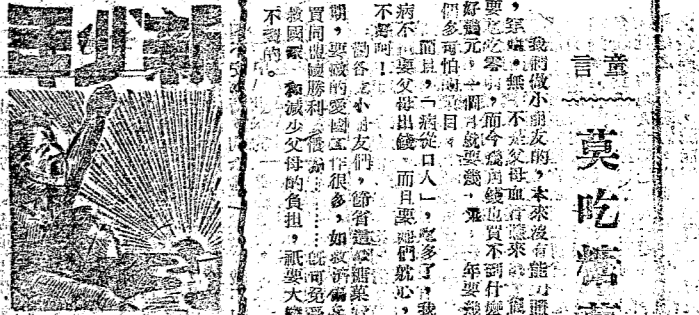 童言
莫吃糖
我們做小朋友的,本來沒有能力賺
無一不是父母血汗換來
要吃吃零,而今幾角錢也買不到什麼
好幾元,一個月就要幾,年要幾
個多可怕的數目。
而且,「病從口入」,吃多了,我
病不但要父母出錢。而且要她們就心,
不好呵!
勸各位小朋友們,節省這些糖菓
要做的愛國工作很多,如救濟傷兵
買同盟國勝利公債……既可免受
救國家,和減少父母的負担,祇要大家
不到的。
新少年